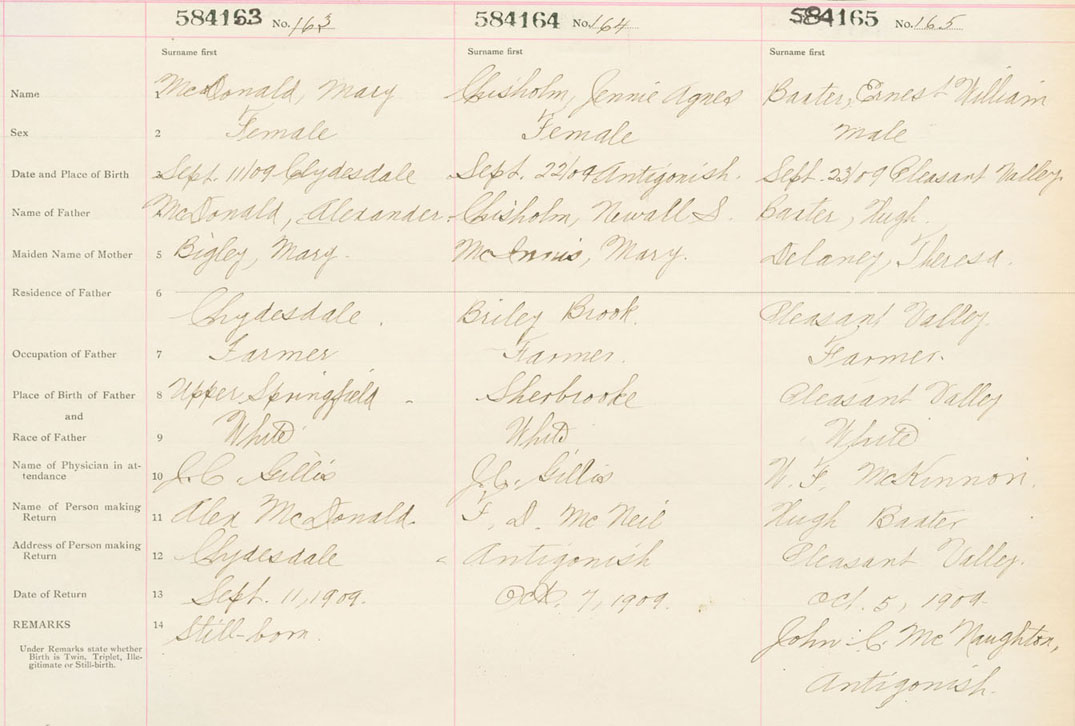 584163 No. 163 584164 No. 164 584165 No. 165
Surname first Surname first Surname first
Name 1 McDonald, Mary Chisholm, Jennie Agnes Baxter, Ernest William
Sex 2 Female Female Male
Date and Place of Birth 3 Sept. 11/09 Clydesdale Sept. 22/09 Antigonish. Sept. 23/09 Pleasant Valley.
Name of Father McDonald, Alexander. Chisholm, Newall S. Baxter, Hugh.
Maiden Name of Mother 5 Bigley, Mary. McInnis, Mary. Delaney, Theresa.
Residence of Father 6
Clydesdale. Briley Brook. Pleasant Valley.
Occupation of Father 7 Farmer Farmer. Farmer.
Place of Birth of Father 8 Upper Springfield Sherbrooke Pleasant Valley
and
Race of Father 9 White White White
Name of Physician in at-
tendance 10 J.C. Gillis J.C. Gillis W. F. McKinnon.
Name of Person making
Return 11 Alex McDonald F. D. McNeil Hugh Baxter
Address of Person making
Return 12 Clydesdale Antigonish Pleasant Valley.
Date of Return 13 Sept. 11, 1909. Oct. 7, 1909. Oct. 5, 1909.
REMARKS 14 Still-born. John C. McNaughton,
Under Remarks state whether
Birth is Twin, Triplet, Ille-
gitimate or Still-birth.
Antigonish.